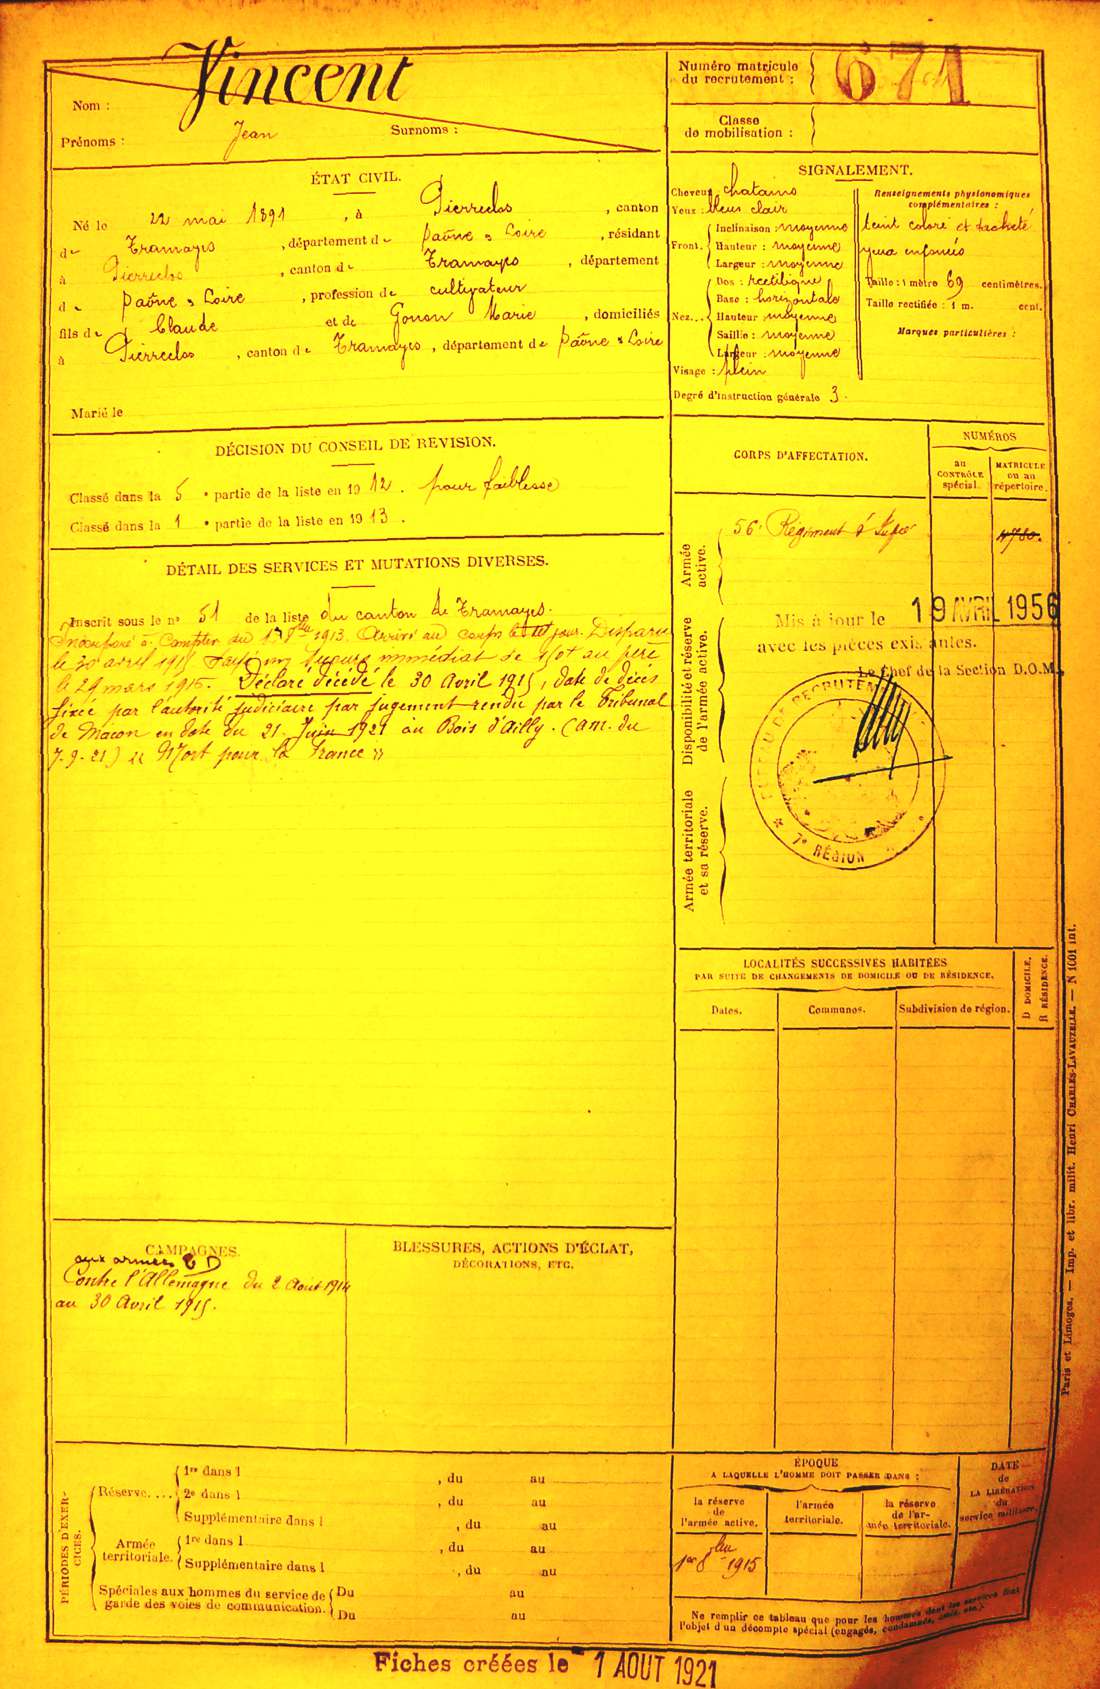 Nom : Vincent
Prénoms : Jean Surnoms :
Numéro matricule du recrutement : 671
Classe de mobilisation :
ÉTAT CIVIL.
Né le 22 mai 1891, à Pierreclos, canton
de Tramayes, département de Saône & Loire, résidant
à Pierreclos, canton de Tramayes, département
de Saône & Loire, profession de cultivateur
fils de Claude et de Gonon Marie, domiciliés
à Pierreclos, canton de Tramayes, département de Saône & Loire
Marié le
SIGNALEMENT.
Cheveux chatains
Yeux : bleus clair
Front. Inclinaison : moyenne
Hauteur : moyenne
Largeur : moyenne
Nez... Dos : rectiligne
Base : horizontale
Hauteur moyenne
Saillie : moyenne
Largeur : moyenne
Visage : plein
Degré d'instruction générale 3.
Renseignements physionomiques complémentaires :
teint coloré et tacheté
yeux enfoncés
Taille : 1 mètre 69 centimètres.
Taille rectifiée : 1 m. cent.
Marques particulières :
DÉCISION DU CONSEIL DE REVISION.
Classé dans la 5e partie de la liste en 1912. pour faiblesse
Classé dans la 1e partie de la liste en 1913.
DÉTAIL DES SERVICES ET MUTATIONS DIVERSES.
Inscrit sous le no 51 de la liste du canton de Tramayes.
Incorporé à compter du 1913. Arrivé au corps le dit jour. Disparu
le 30 avril 1915 secours immédiat de au père
le 29 mars 1915. Déclaré décédé le 30 Avril 1915, date de décès
fixée par l'autorité judiciaire par jugement rendu par le Tribunal
de Macon en date du 21 Juin 1921 au Bois d'Ailly. (am. du
7.9.21) "Mort pour la France"
CORPS D'AFFECTATION.
NUMÉROS
au CONTRÔLE spécial.
MATRICULE ou au répertoire.
Armée active.
56e Régiment d'Infie
4780.
Disponibilité et réserve de l'armée active.
Armée territoriale et sa réserve.
Mis à jour le 19 AVRIL 1956
avec les pièces existantes.
Le Chef de la Section D.O.M.
DE RECRUTEMENT
7e RÉGION
LOCALITÉS SUCCESSIVES HABITÉES
PAR SUITE DE CHANGEMENTS DE DOMICILE OU DE RÉSIDENCE.
Dates. Communes. Subdivision de région. D DOMICILE. R RÉSIDENCE.
CAMPAGNES.
aux armées
Contre l'Allemagne du 2 Août 1914
au 30 Avril 1915.
BLESSURES, ACTIONS D'ÉCLAT,
DÉCORATIONS, ETC.
PÉRIODES D'EXERCICES.
Réserve.... 1re dans l , du au
2e dans l , du au
Supplémentaire dans l , du au
Armée territoriale. 1re dans l , du au
Supplémentaire dans l , du au
Spéciales aux hommes du service de garde des voies de communication. Du au
Du au
ÉPOQUE
A LAQUELLE L'HOMME DOIT PASSER DANS :
la réserve de l'armée active.
l'armée territoriale.
la réserve de l'armée territoriale.
DATE de LA LIBÉRATION du service militaire.
1er 8bre 1915
Ne remplir ce tableau que pour les hommes dont les services font
l'objet d'un décompte spécial (engagés, condamnés, omis, etc.).
Paris et Limoges. — Imp. et libr. milit. Henri CHARLES-LAVAUZELLE. — N 1001 int.
Fiches créées le 1 AOUT 1921